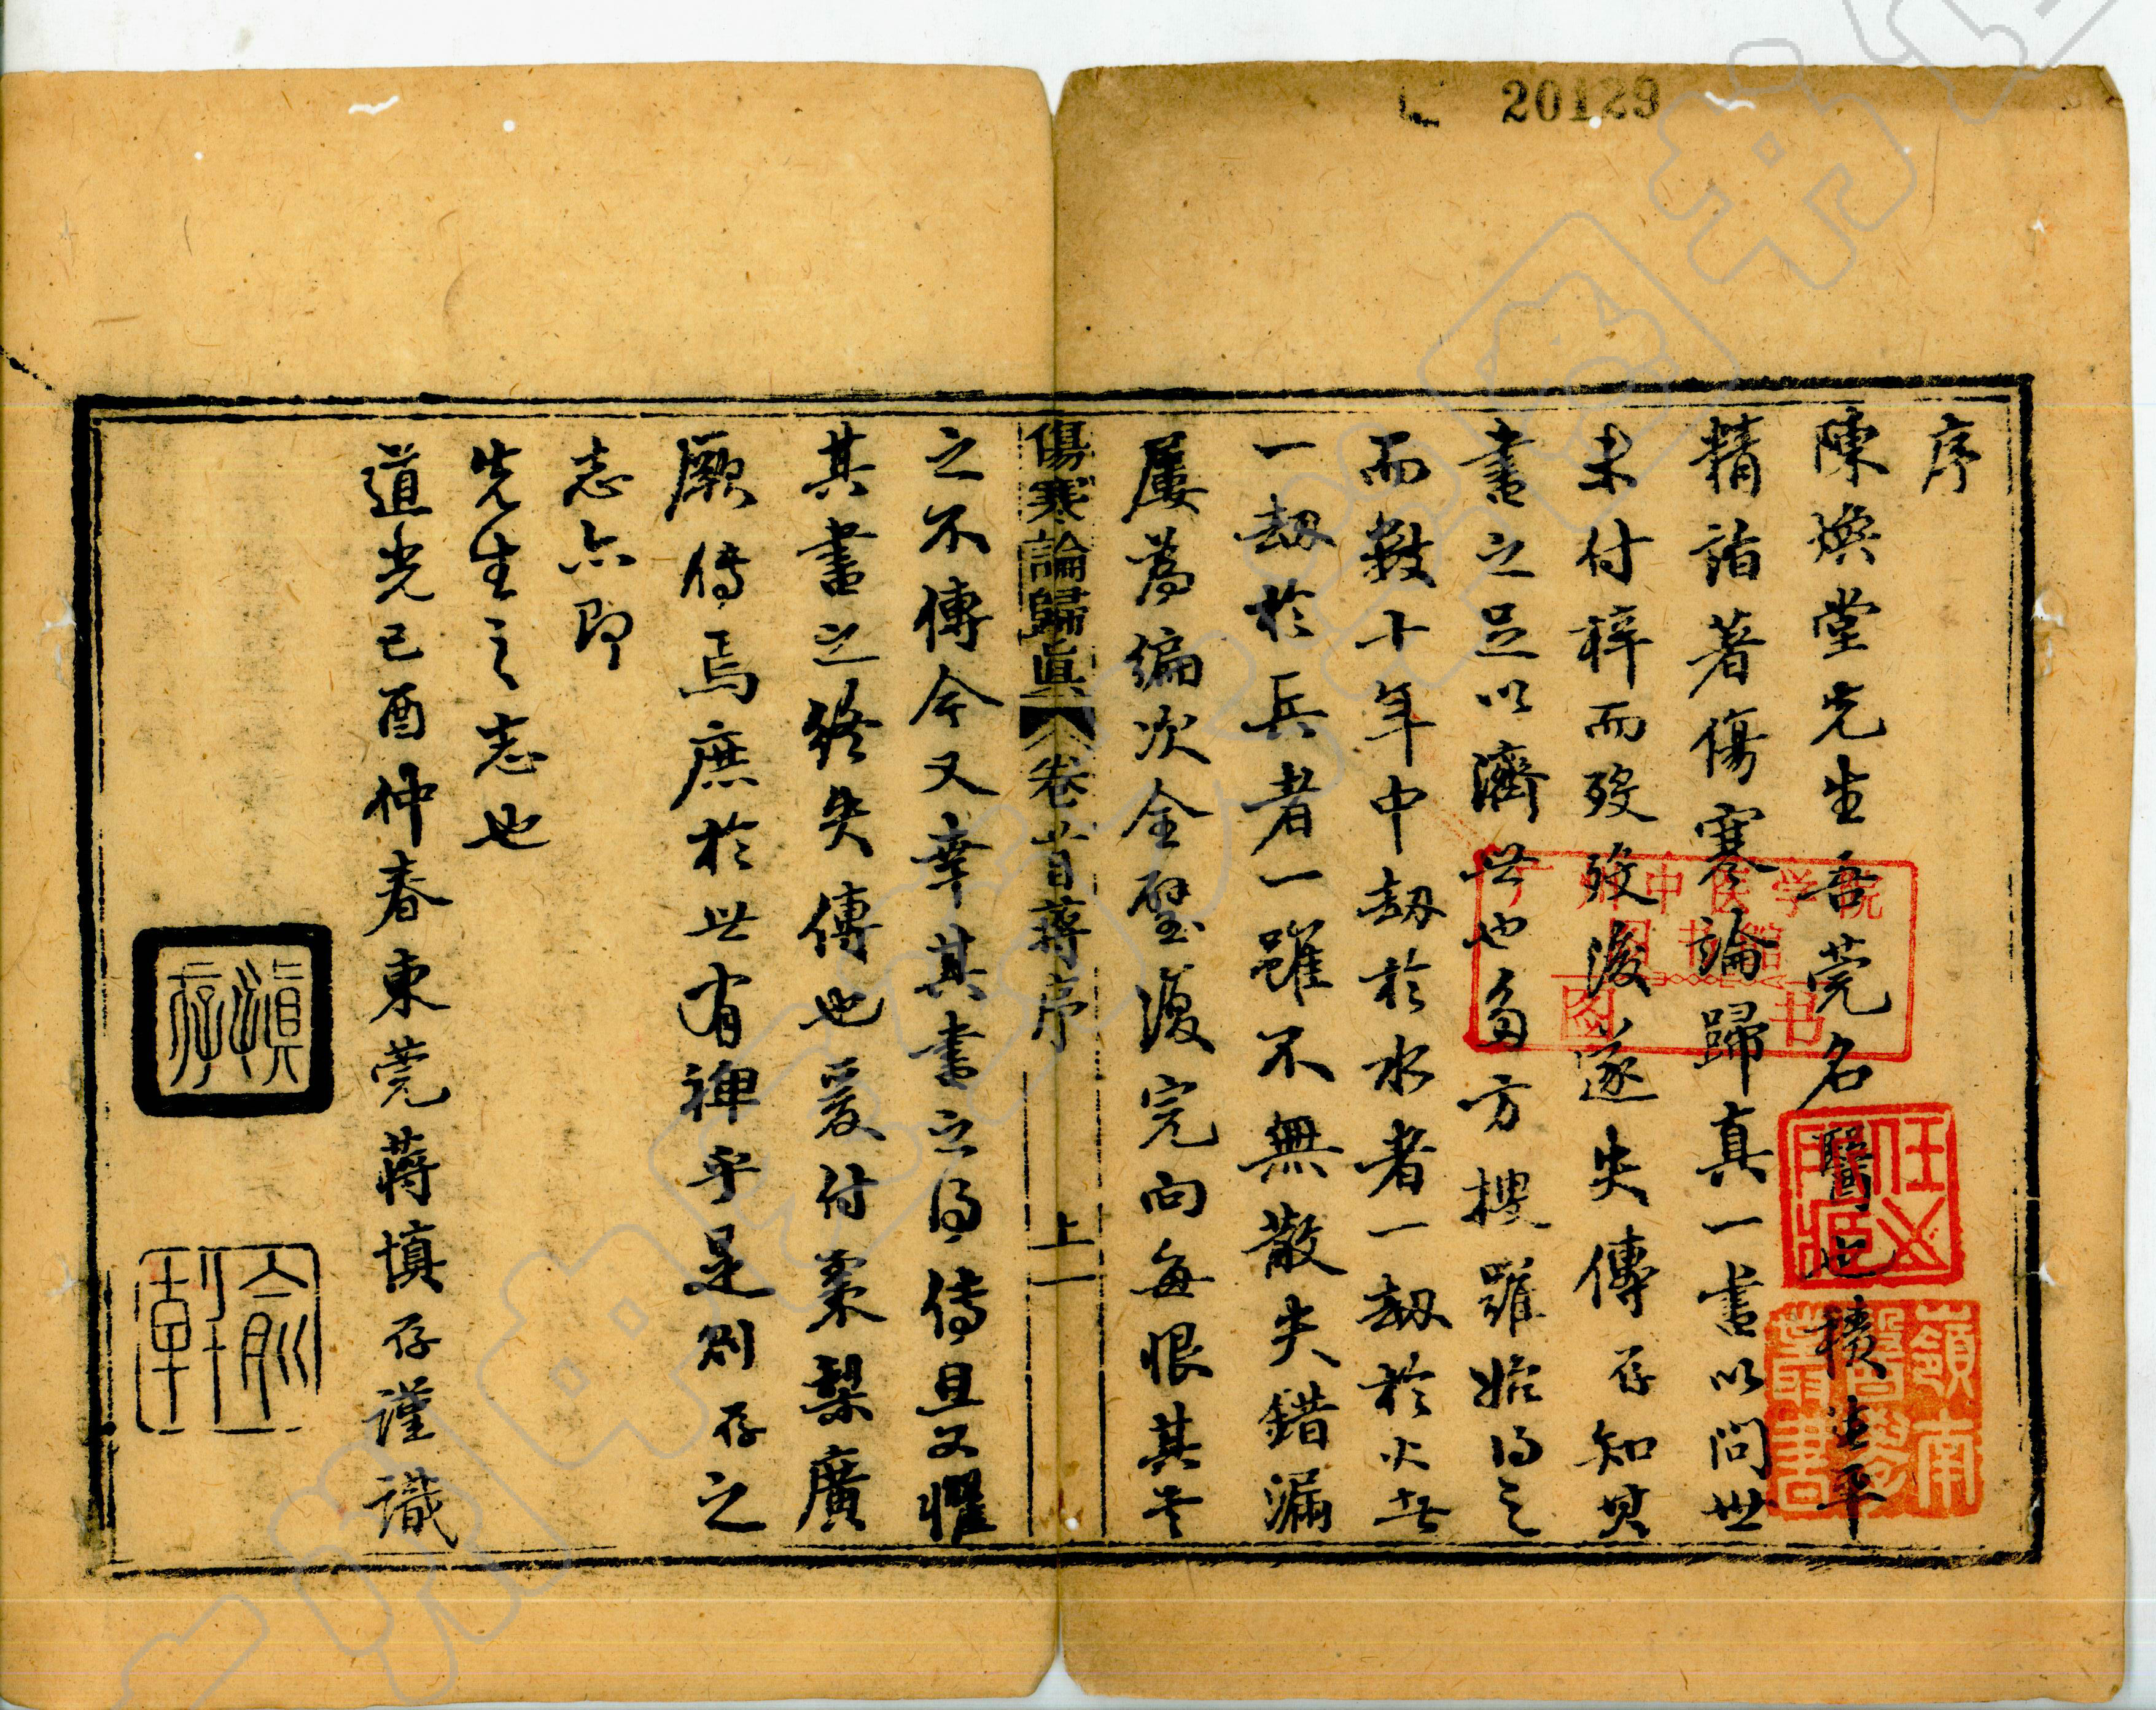 20129
序
陳煥堂先生吾莞名醫也積生平
精詣著傷寒論歸真一書以問世
未付梓而歿歿後遂失傳存知其
書之足以濟世也多方搜羅始得之
而數十年中刼於水者一刼於火者
一刼於兵者一雖不無散失錯漏
屢為編次全璧復完向每恨其書
傷寒論歸眞 卷首蔣序 上一
之不傳今又幸其書之得傳且又懼
其書之終失傳也爰付棗梨廣
厥傳焉庶於世有裨乎是則存之
志亦即
先生之志也
道光己酉仲春東莞蔣慎存謹識
慎存
廣州中医学院
图书馆
图书
嶺南醫學叢書